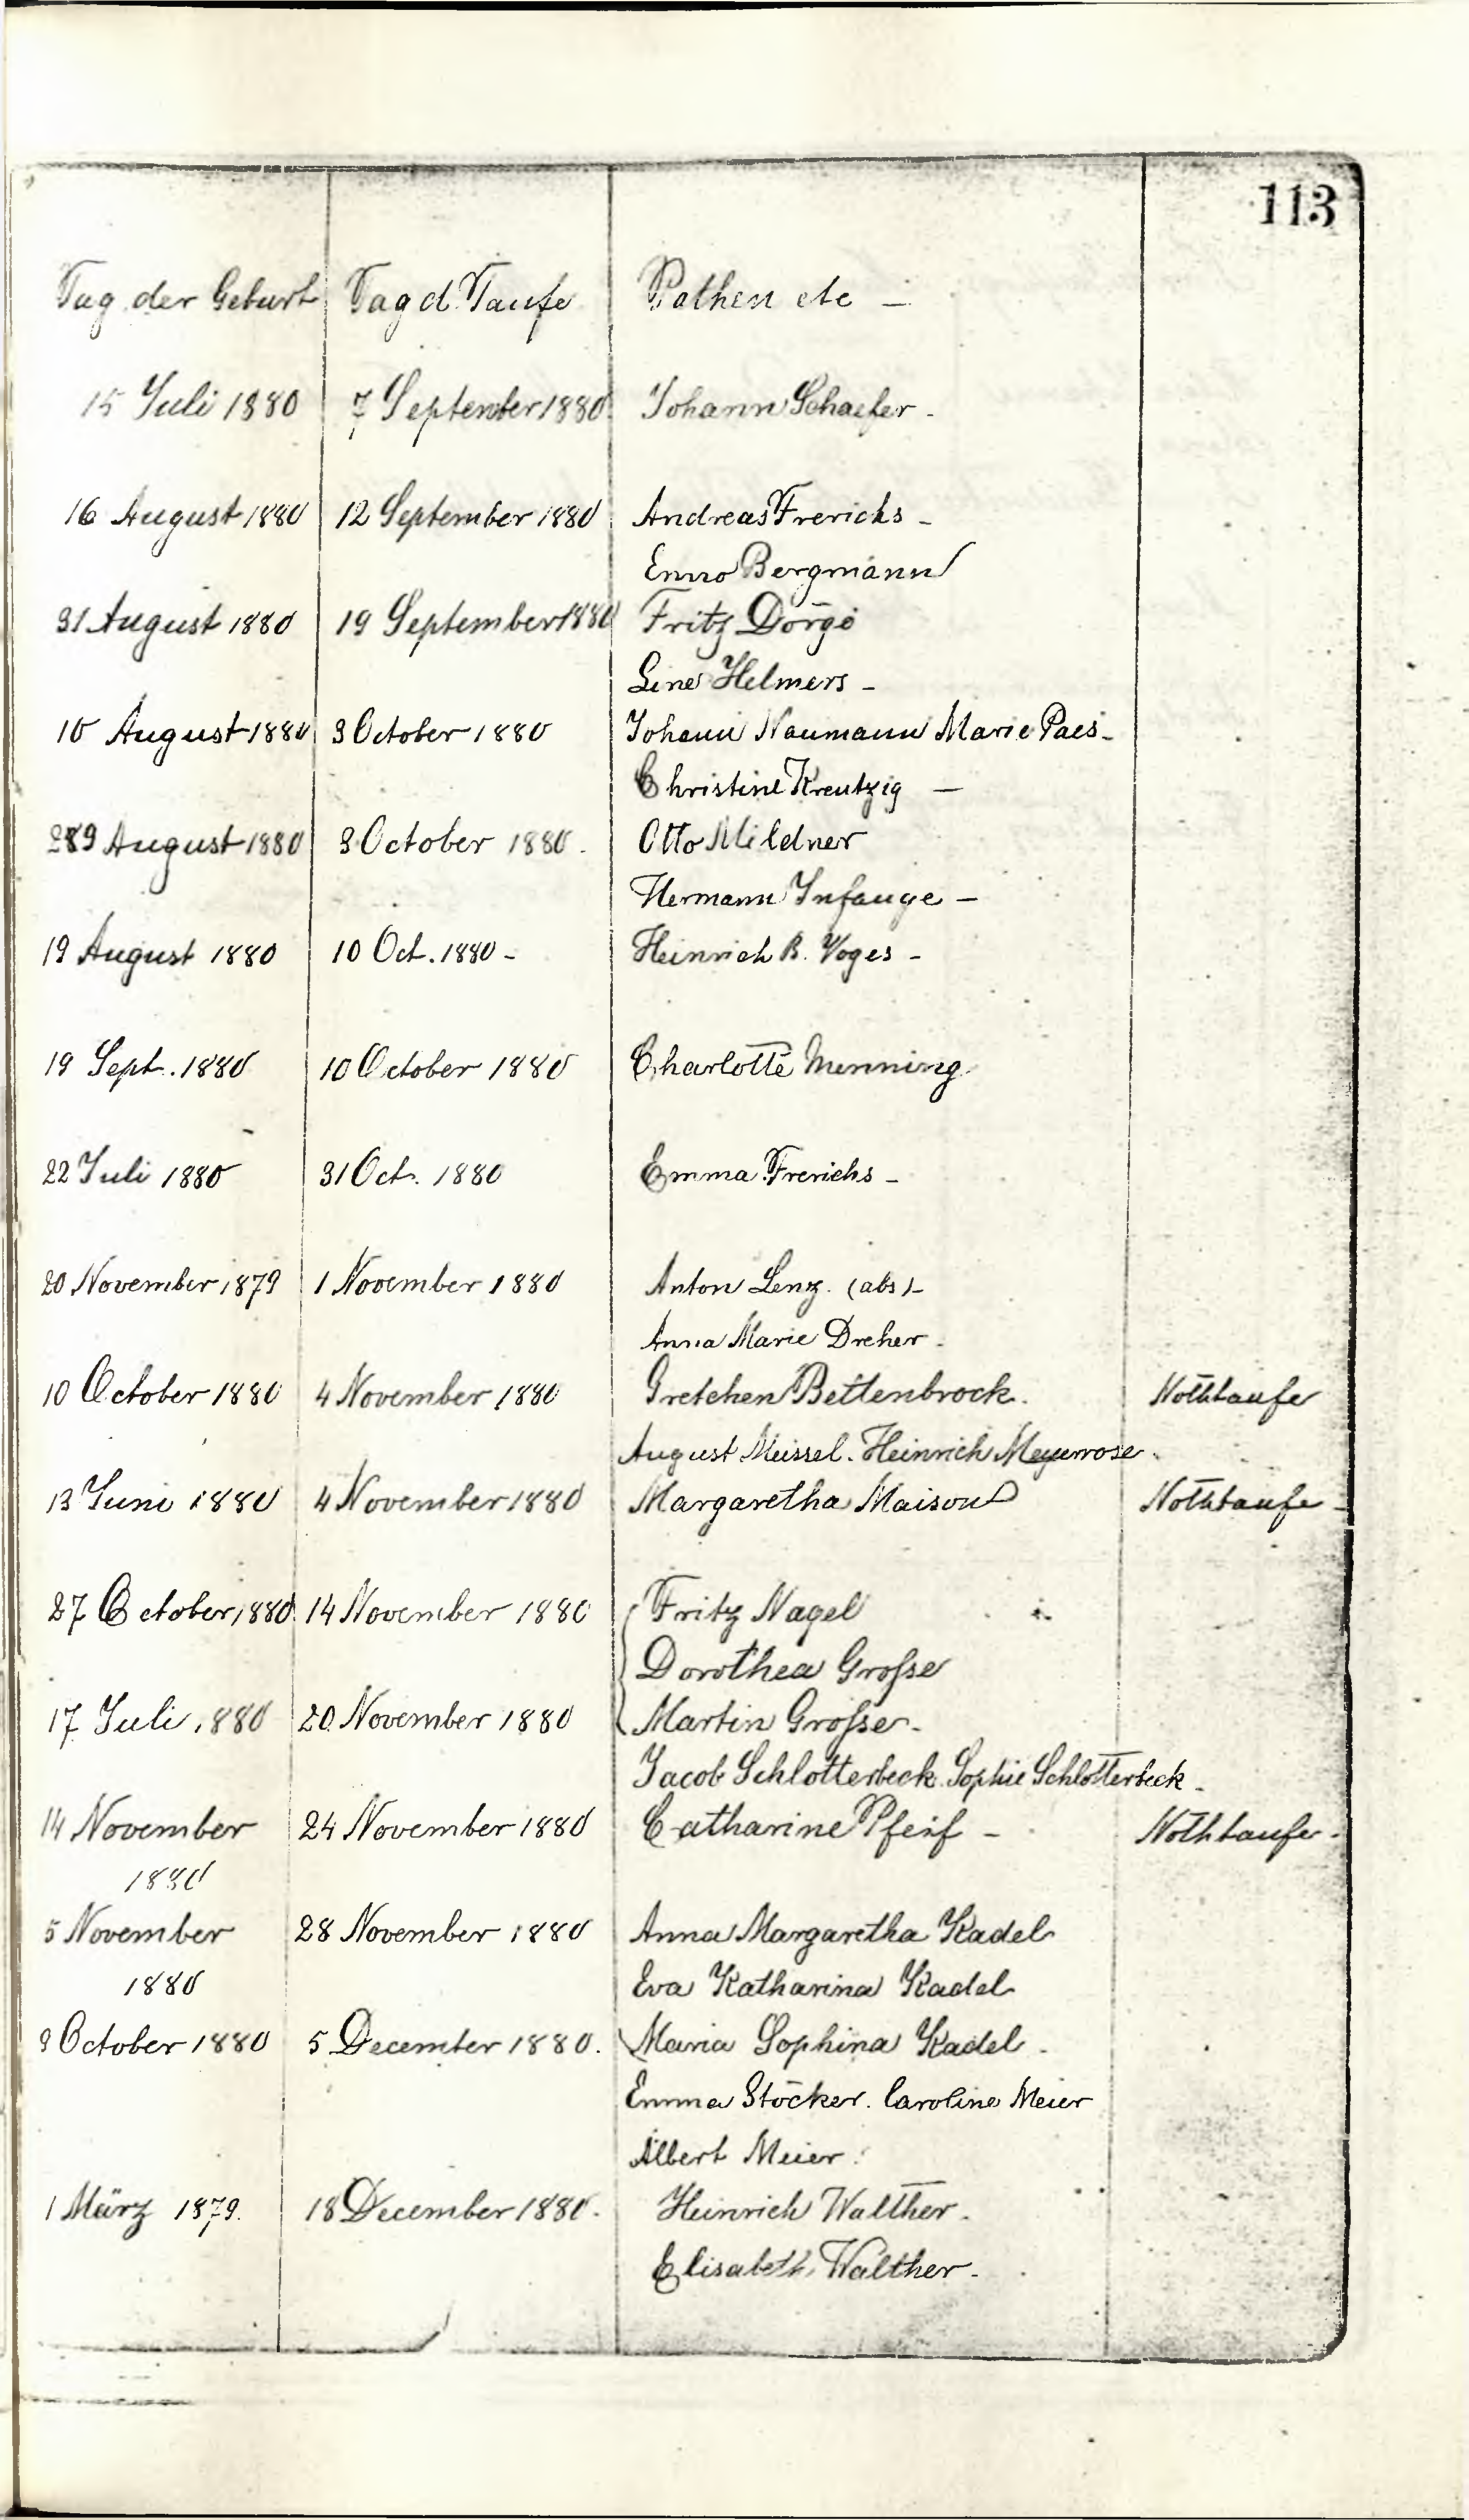 113
Tag der Geburt Tag d. Taufe Pathen etc —
15 Juli 1880 7 September 1880. Johann Schaefer -
16 August 1880 12 September 1880 Andreas Frerichs -
Enno Bergmann
31 August 1880 19 September 1880 Fritz Dörge
Line Helmers -
10 August 1880 3 October 1880 Johann Naumann Marie Paes -
Christine Kreutzig —
29 August 1880 3 October 1880. Otto Mildner
Hermann Infange -
19 August 1880 10 Oct. 1880 - Heinrich B. Voges -
19 Sept. 1880 10 October 1880 Charlotte Menning
22 Juli 1880 31 Oct. 1880 Emma Frerichs -
20 November 1879 1 November 1880 Anton Lenz. (abs) -
Anna Marie Dreher.
10 October 1880 4 November 1880 Gretchen Bettenbrock. Nothtaufe
August Meissel. Heinrich Meyerrose.
13 Juni 1880 4 November 1880 Margaretha Maison Nothtaufe -
27 October 1880. 14 November 1880 Fritz Nagel
Dorothea Grosse
17 Juli 1880 20. November 1880 Martin Grosse -
Jacob Schlotterbeck. Sophie Schlotterbeck -
14 November 24 November 1880 Catharine Pfeif - Nothtaufe -
1880
5 November 28 November 1880 Anna Margaretha Kadel
1880 Eva Katharina Kadel
3 October 1880 5 December 1880. Maria Sophina Kadel -
Emma Stöcker. Caroline Meier
Albert Meier.
1 März 1879. 18 December 1880. Heinrich Walther.
Elisabeth Walther -